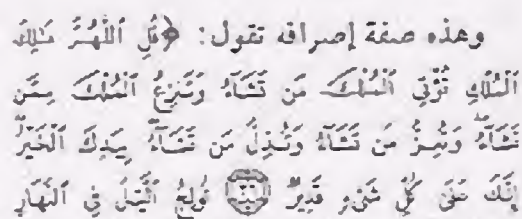 وهذه صفة إصرافه تقول: ﴿قُلِ ٱللَّهُمَّ مَٰلِكَ
ٱلْمُلْكِ تُؤْتِي ٱلْمُلْكَ مَن تَشَآءُ وَتَنزِعُ ٱلْمُلْكَ مِمَّن
تَشَآءُ وَتُعِزُّ مَن تَشَآءُ وَتُذِلُّ مَن تَشَآءُ بِيَدِكَ ٱلْخَيْرُ
إِنَّكَ عَلَىٰ كُلِّ شَيْءٍ قَدِيرٌ تُولِجُ ٱلَّيْلَ فِي ٱلنَّهَارِ